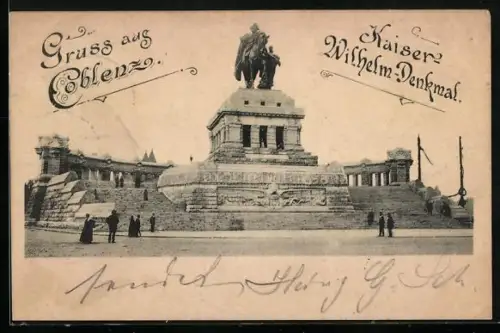 Gruss aus
Coblenz.
Kaiser
Wilhelm-Denkmal.
sendet